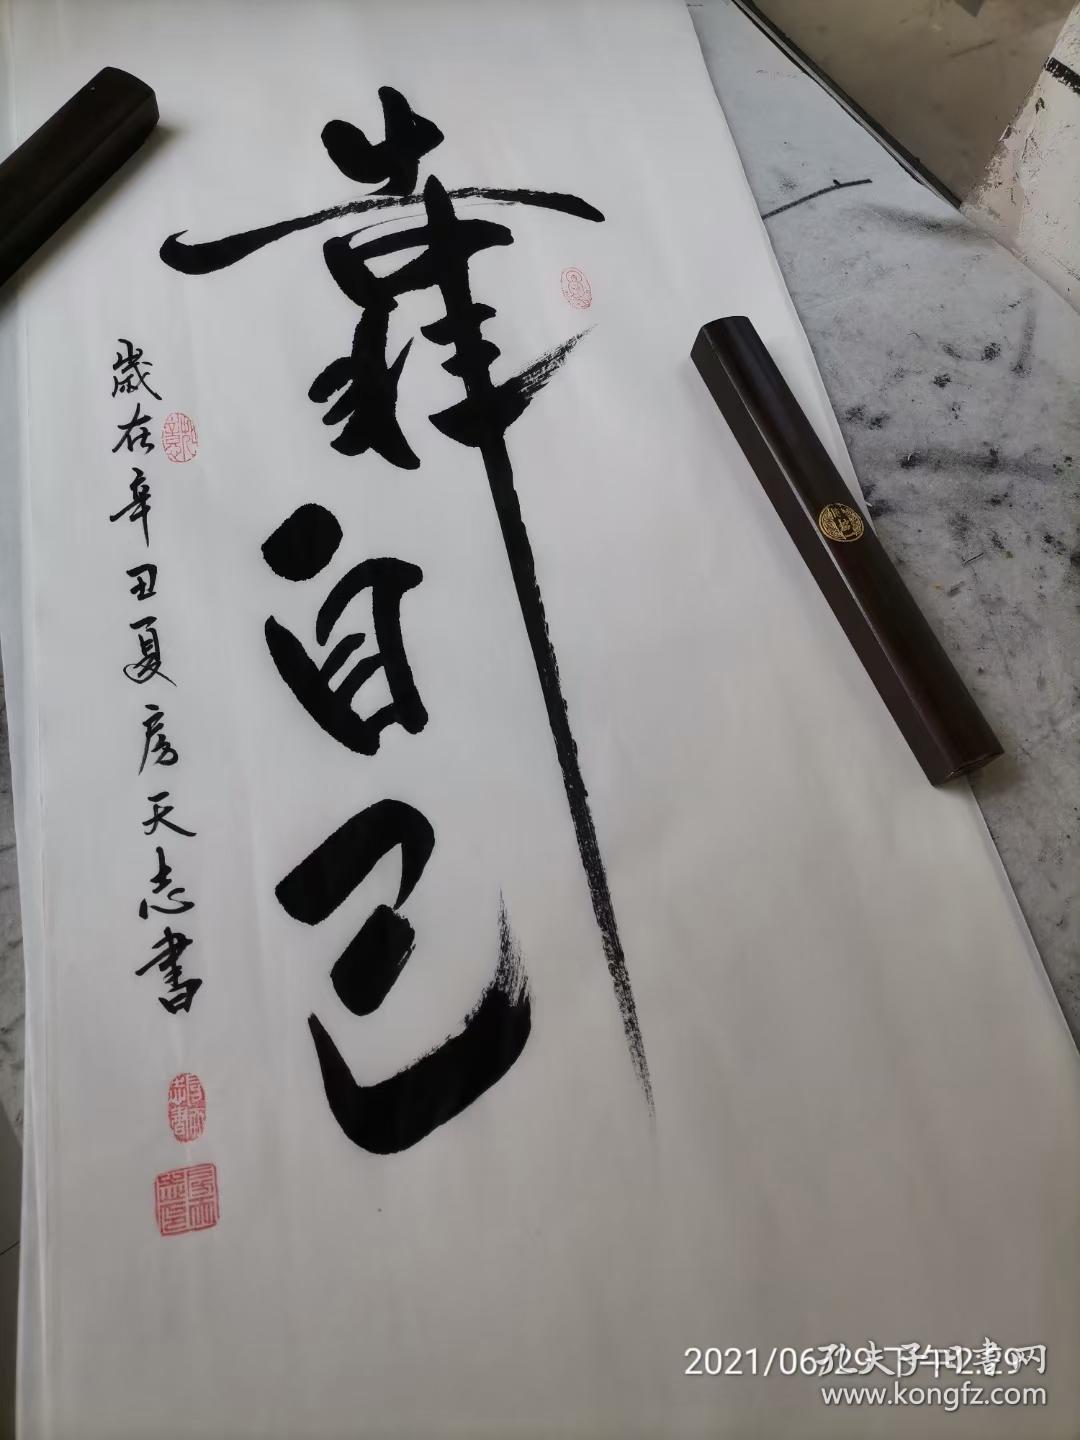 靠自己
歲在辛丑夏房天志書
2021/06/29 下午2:29
孔夫子旧書网
www.kongfz.com